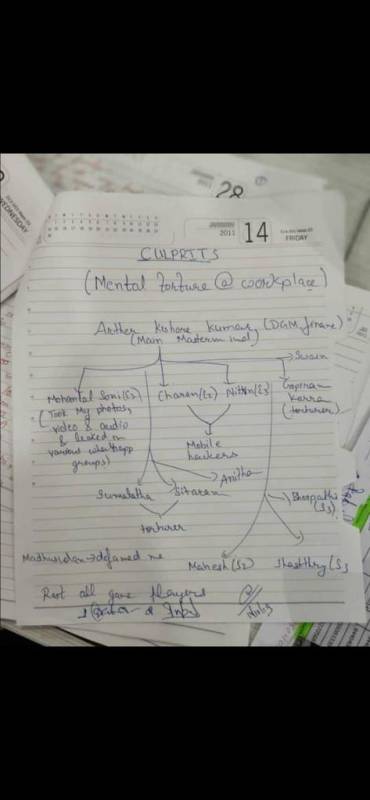 28
WEDNESDAY
JANUARY
2011
14
FRIDAY
CULPRITS
(Mental torture @ workplace)
Kishore Kumar (DGM finance)
(Main Mastermind)
Swain
Mohanlal Soni(S2)
Charan(S2)
Nittin(S3)
(Took My photos,
video & audio
& leaked in
various whatsapp
groups)
(torturer)
Mobile
hackers
Anitha
Sumalatha
Sitaram
torturer
Bhoopathi
(S3)
Madhusudan → defamed me
Mahesh(S2)
Shasthry(S3
Rest all game players